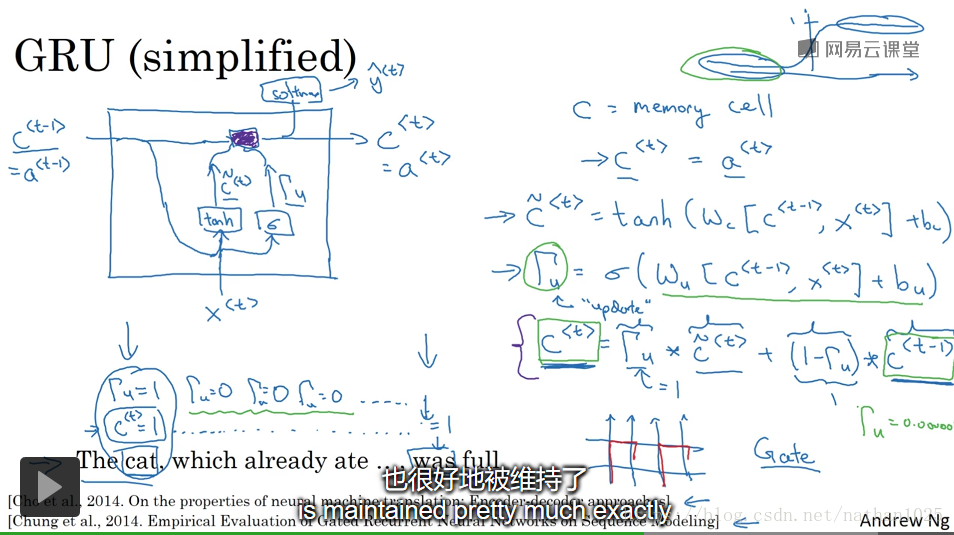 GRU (simplified)
网易云课堂
softmax → ŷ<t>
c<t-1>
= a<t-1>
c<t>
= a<t>
c̃<t>
Γu
tanh
σ
x<t>
c = memory cell
→ c<t> = a<t>
→ c̃<t> = tanh(Wc[c<t-1>, x<t>] + bc)
→ Γu = σ(Wu[c<t-1>, x<t>] + bu)
"update"
c<t> = Γu * c̃<t> + (1-Γu) * c<t-1>
= 1
Γu = 0.00000
Gate
Γu=1 Γu=0 Γu=0 Γu=0 .....
→ c<t>=1 ........ =1
→ The cat, which already ate ..., was full.
也很好地被维持了
[Cho et al., 2014. On the properties of neural machine translation: Encoder-decoder approaches] ←
is maintained pretty much exactly
[Chung et al., 2014. Empirical Evaluation of Gated Recurrent Neural Networks on Sequence Modeling] ←
blog.csdn.net/nathan1025
Andrew Ng